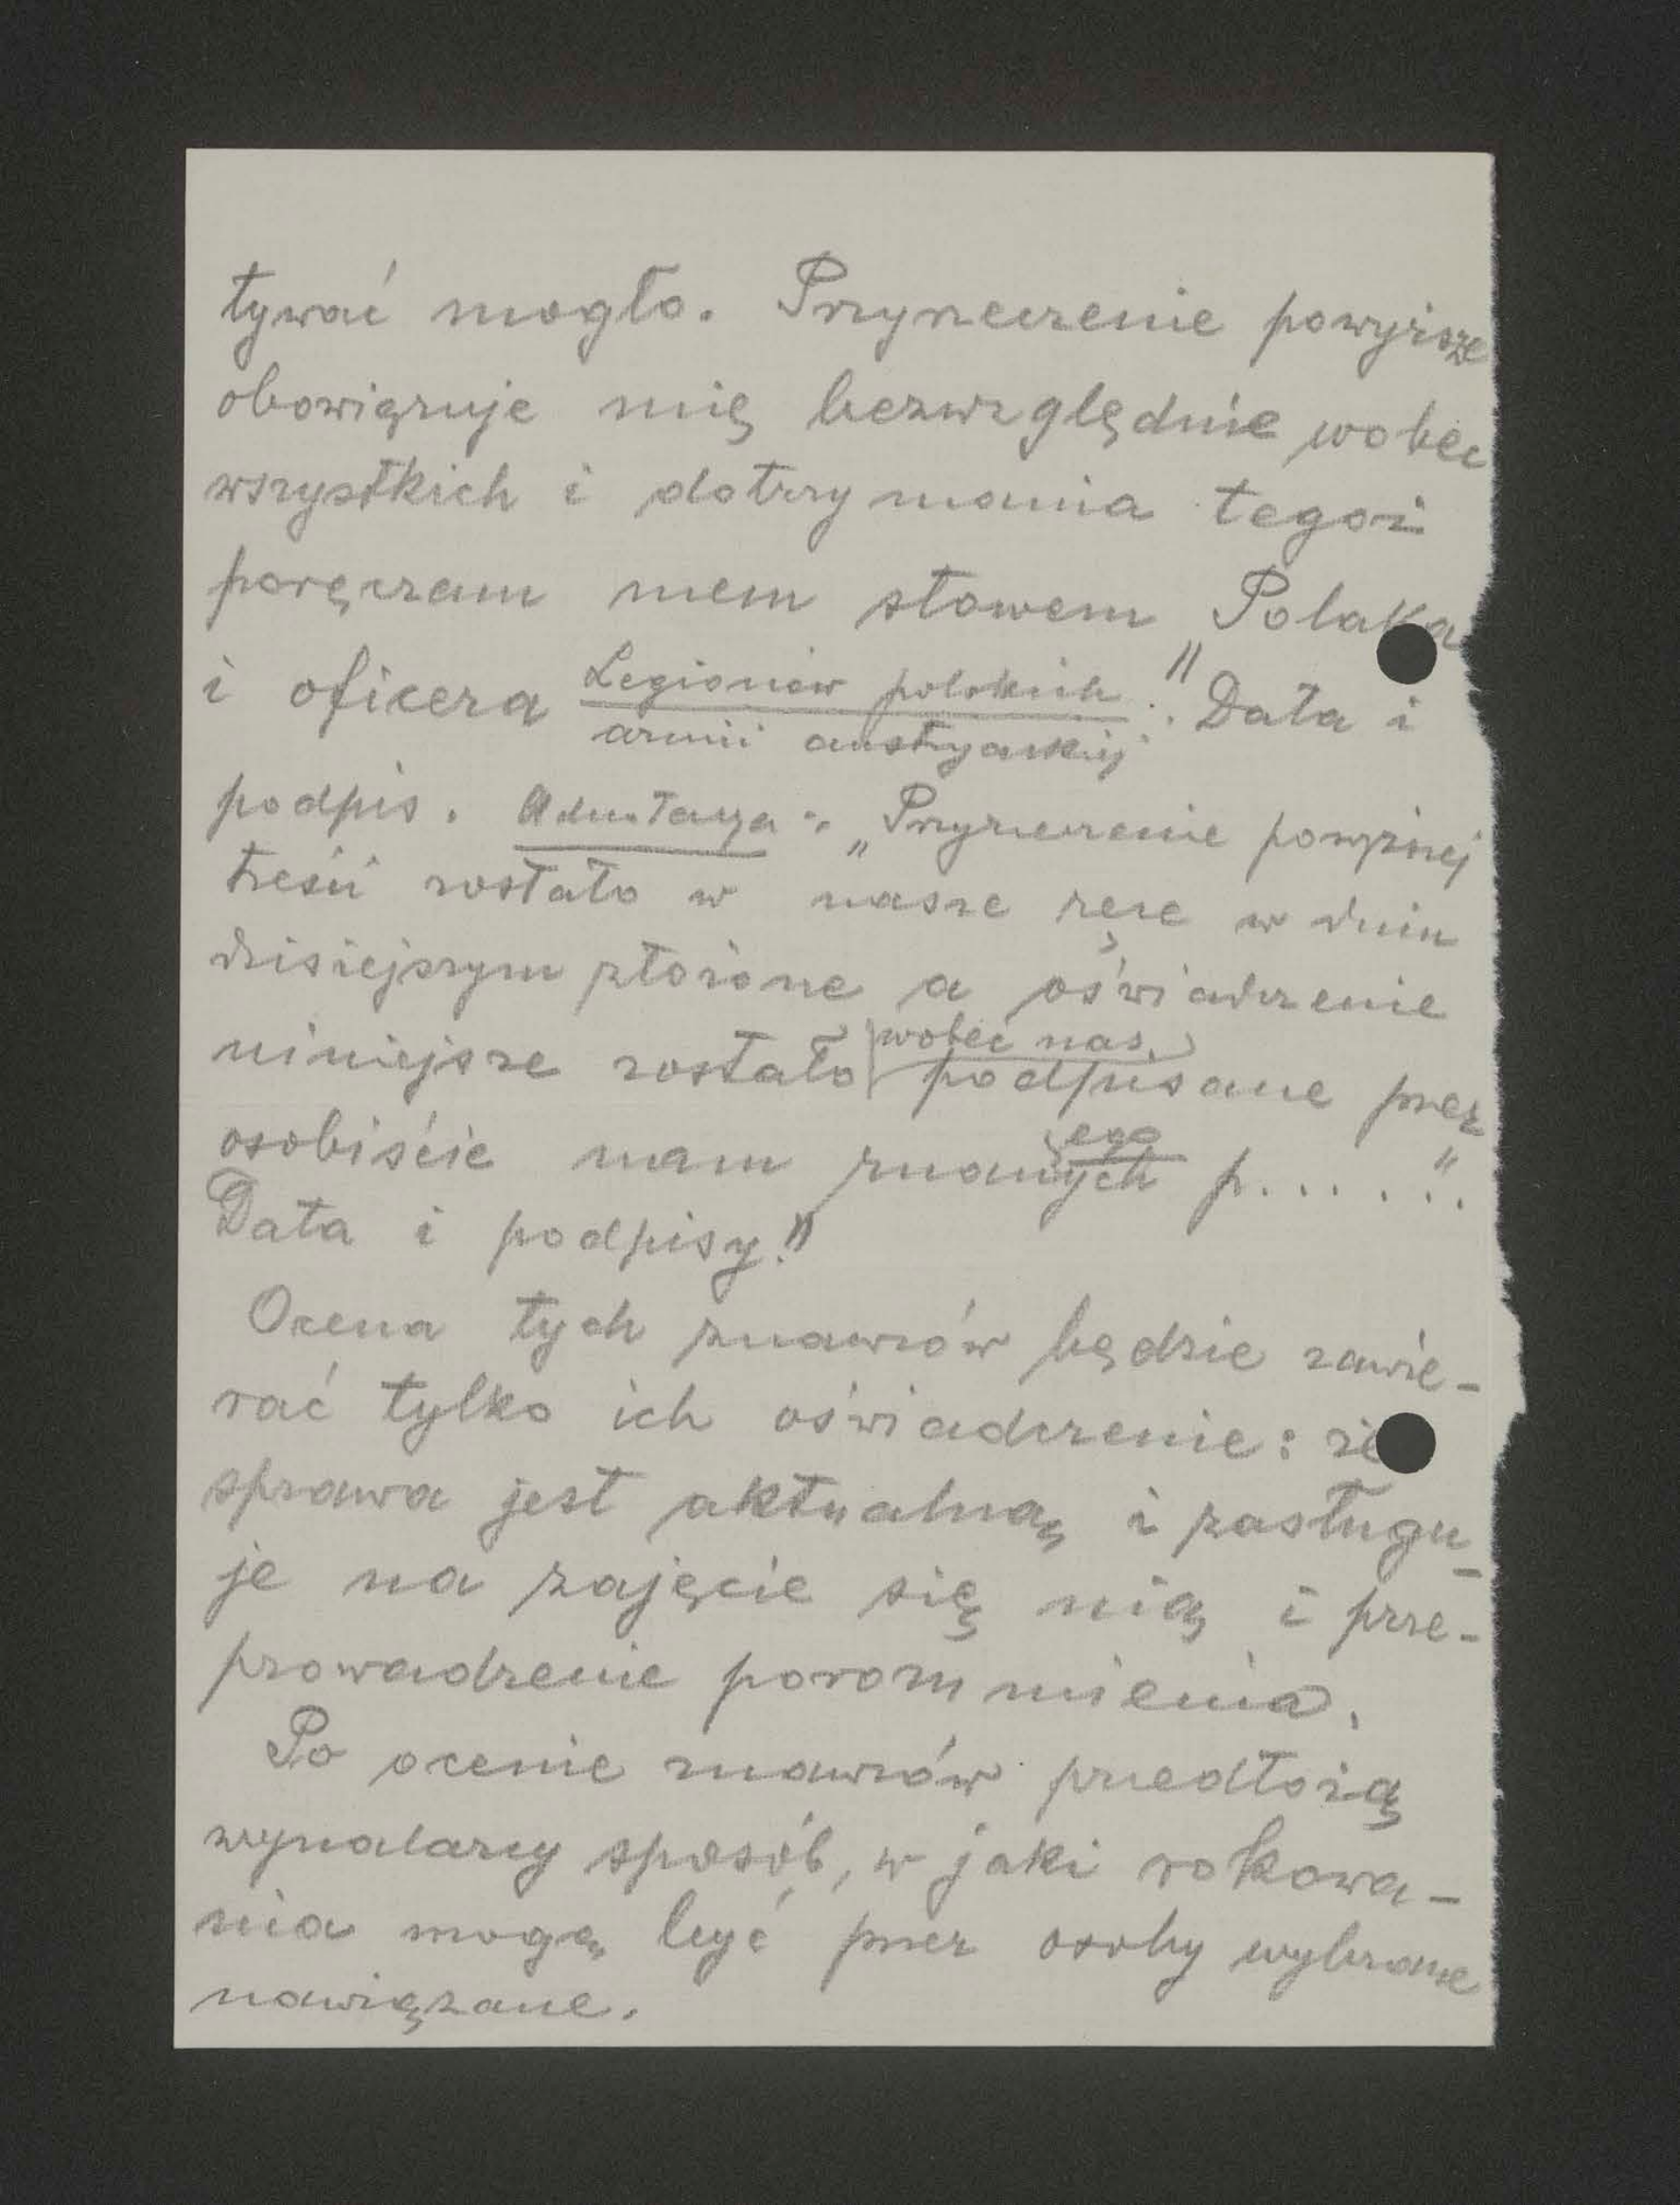 tywać mogło. Przyrzeczenie powyższe
obowiązuje mię bezwzględnie wobec
wszystkich i dotrzymania tegoż
poręczam mem słowem Polaka
i oficera Legionów polskich
armii austryackiej." Data i
podpis. Adnotacya: „Przyrzeczenie powyższej
treści zostało w nasze ręce w dniu
dzisiejszym złożone a oświadczenie
niniejsze zostało wobec nas podpisane przez
osobiście nam znanych ego p......"
Data i podpisy."
Ocena tych znawców będzie zawie-
rać tylko ich oświadczenie: że
sprawa jest aktualną i zasługu-
je na zajęcie się nią i prze-
prowadzenie porozumienia.
Po ocenie znawców przedłożą
wynalazcy sposób, w jaki rokowa-
nia mogą być przez osoby wybrane
nawiązane.